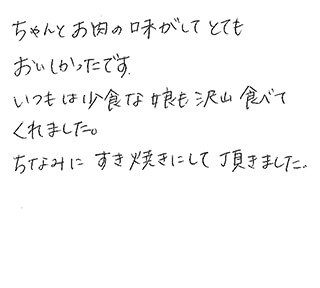 ちゃんとお肉の味がしてとても
おいしかったです。
いつもは少食な娘も沢山食べて
くれました。
ちなみにすき焼きにして頂きました。